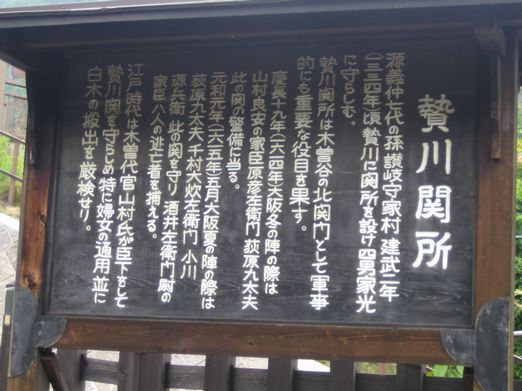 贄川関所
源義仲七代の孫讃岐守家村建武二年
(一三三四年)頃贄川に関所を設け四男家光
に守らしむ。
贄川関所は木曽谷の北関門として軍事
的にも重要な役目を果す。
慶長十九年(一六一四年)大阪冬の陣の際は
山村良安の家臣原彦左衛門荻原九太夫
此の関の警備に当る。
元和元年(一六一五年)五月大阪夏の陣の際は
荻原九太夫千村大炊左衛門小川
源右衛此の関を守り酒井左衛門尉の
家臣八人の逃亡者を捕える。
江戸時代木曽代官山村氏が臣下をして
贄川関を守らしめ特に婦女の通用並に
白木の搬出を厳検せり。